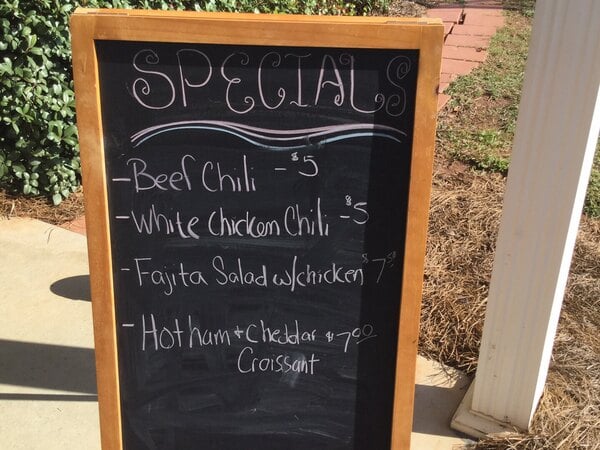 SPECIALS
- Beef Chili - $5
- White Chicken Chili - $5
- Fajita Salad w/chicken $7.50
- Hot ham + Cheddar $7.00
Croissant